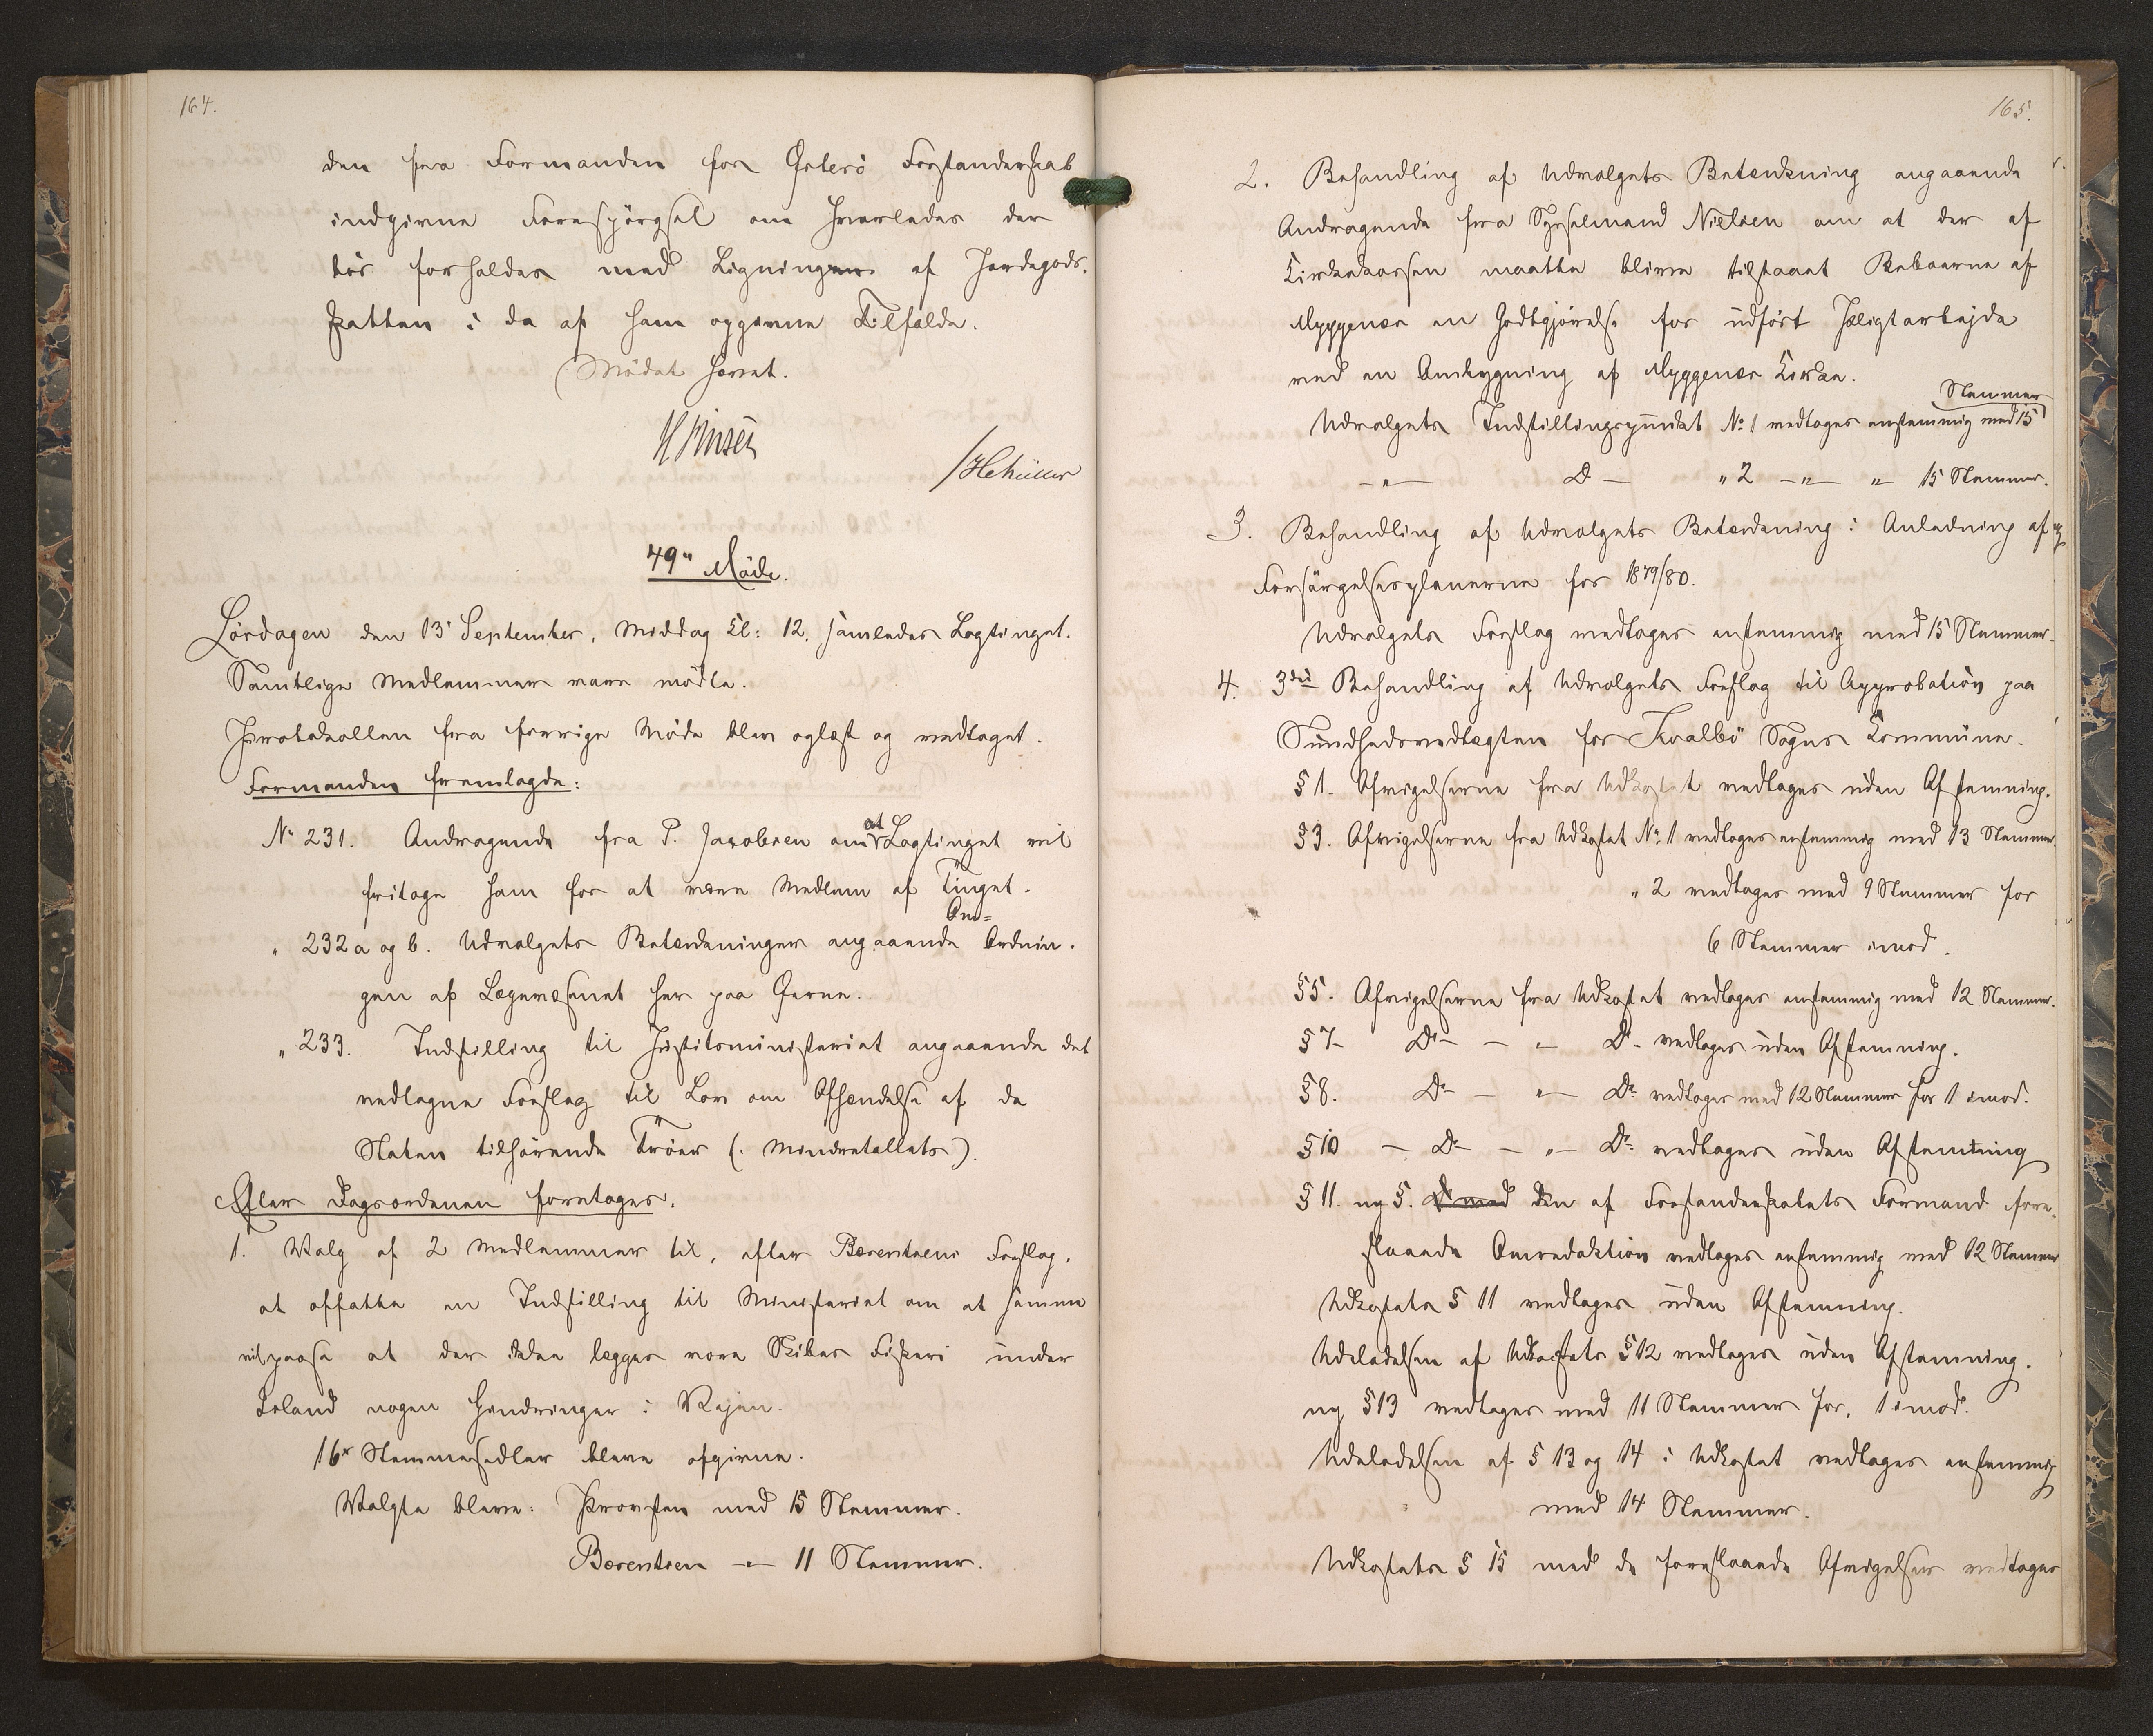 164.
den fra Formanden for Østerø Forstanderskab
indgivne Forespörgsel om hvorledes der
bör forholdes med Ligningen af Jordegods-
skatten i de af ham opgivne Tilfælde.
Mödet hævet.
H Finsen
/HCMüller
49de Möde.
Lördagen den 13' September, Middag Kl: 12, samledes Lagtinget.
Samtlige Medlemmer vare mödte.
Protokollen fra forrige Möde blev oplæst og vedtaget.
Formanden fremlagde:
No 231. Andragende fra P. Jacobsen om at Lagtinget vil
fritage ham for at være Medlem af Tinget.
" 232 a og b. Udvalgets Betænkninger angaaende Om=
Ordnin-
gen af Lægevæsenet her paa Øerne.
" 233. Indstilling til Justitsministeriet angaaende det
vedtagne Forslag til Lov om Afhændelse af de
Staten tilhørende Tröer (: Mindretallets).
Efter Dagsordenen foretoges.
1. Valg af 2 Medlemmer til, efter Bærentsens Forslag,
at affatte en Indstilling til Ministeriet om at samme
vil paase at der ikke lægges vore Skibes Fiskeri under
Island nogen Hindringer i Vejen.
16 Stemmesedler bleve afgivne.
Valgte bleve: Provsten med 15 Stemmer.
Bærentsen — " — 11 Stemmer.
165.
2. Behandling af Udvalgets Betænkning angaaende
Andragende fra Sysselmand Nielsen om at der af
Kirkekassen maatte blive tilstaaet Beboerne af
Myggenæs en Godtgjörelse for udfört Pligtarbejde
ved en Ombygning af Myggenæs Kirke.
Udvalgets Indstillingspunkt No 1 vedtoges enstemmig med 15 Stemmer
— " — Do — " 2 — " — " — 15 Stemmer.
3. Behandling af Udvalgets Betænkning i Anledning af
Forsörgelsesplanerne for 1879/80.
Udvalgets Forslag vedtoges enstemmig med 15 Stemmer.
4. 3die Behandling af Udvalgets Forslag til Approbation paa
Sundhedsvedtægten for Kvalbö Sogns Kommune.
§ 1. Afvigelserne fra Udkastet vedtoges uden Afstemning.
§ 3. Afvigelserne fra Udkastet No 1 vedtoges enstemmig med 13 Stemmer.
" 2 vedtoges med 9 Stemmer for
6 Stemmer imod.
§ 5. Afvigelserne fra Udkastet vedtoges enstemmig med 12 Stemmer.
§ 7 — Do — — " — Do — vedtoges uden Afstemning.
§ 8. Do — — " — Do vedtoges med 12 Stemmer for 1 imod.
§ 10 — Do — — " — Do vedtoges uden Afstemning
§ 11. ny §. Do med Den af Forstanderskabets Formand fore-
slaaede Omredaktion vedtoges enstemmig med 12 Stemmer
Udkastets § 11 vedtoges uden Afstemning.
Udeladelsen af Udkastets § 12 vedtoges uden Afstemning.
ny § 13 vedtoges med 11 Stemmer for, 1 imod.
Udeladelsen af § 13 og 14 i Udkastet vedtoges enstemmig
med 14 Stemmer.
Udkastets § 15 med de foreslaaede Afvigelser vedtoges